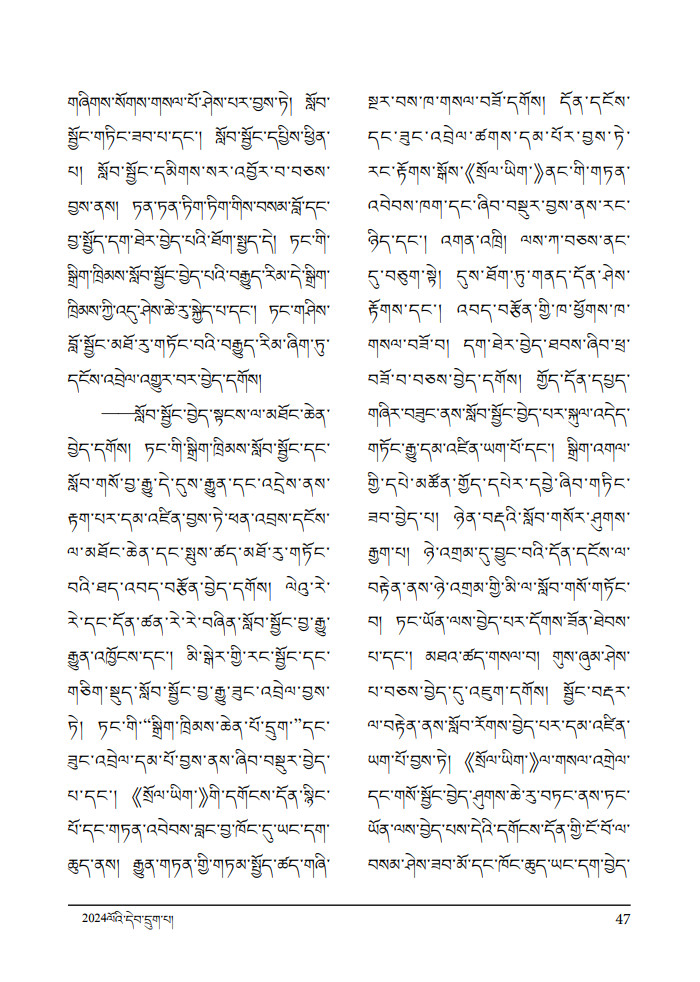 གཞིགས་སོགས་གསལ་པོ་ཤེས་པར་བྱས་ཏེ། སློབ་
སྦྱོང་གཏིང་ཟབ་པ་དང་། སློབ་སྦྱོང་དཔྱིས་ཕྱིན་
པ། སློབ་སྦྱོང་དམིགས་སར་འབྱོར་བ་བཅས་
བྱས་ནས། ཏན་ཏན་ཏིག་ཏིག་གིས་བསམ་བློ་དང་
བྱ་སྤྱོད་དག་ཐེར་བྱེད་པའི་ཐོག་སྤྱད་དེ། ཏང་གི་
སྒྲིག་ཁྲིམས་སློབ་སྦྱོང་བྱེད་པའི་བརྒྱུད་རིམ་དེ་སྒྲིག་
ཁྲིམས་ཀྱི་འདུ་ཤེས་ཆེ་རུ་སྐྱེད་པ་དང་། ཏང་གཤིས་
བློ་སྦྱོང་མཐོ་རུ་གཏོང་བའི་བརྒྱུད་རིམ་ཞིག་ཏུ་
དངོས་འབྲེལ་འགྱུར་བར་བྱེད་དགོས།
——སློབ་སྦྱོང་བྱེད་སྟངས་ལ་མཐོང་ཆེན་
བྱེད་དགོས། ཏང་གི་སྒྲིག་ཁྲིམས་སློབ་སྦྱོང་དང་
སློབ་གསོ་བྱ་རྒྱུ་དེ་དུས་རྒྱུན་དང་འདྲེས་ནས་
རྟག་པར་དམ་འཛིན་བྱས་ཏེ་ཕན་འབྲས་དངོས་
ལ་མཐོང་ཆེན་དང་སྤུས་ཚད་མཐོ་རུ་གཏོང་
བའི་ཐད་འབད་བརྩོན་བྱེད་དགོས། ལེའུ་རེ་
རེ་དང་དོན་ཚན་རེ་རེ་བཞིན་སློབ་སྦྱོང་བྱ་རྒྱུ་
རྒྱུན་འཁྱོངས་དང་། མི་སྒེར་གྱི་རང་སྦྱོང་དང་
གཅིག་སྡུད་སློབ་སྦྱོང་བྱ་རྒྱུ་ཟུང་འབྲེལ་བྱས་
ཏེ། ཏང་གི་“སྒྲིག་ཁྲིམས་ཆེན་པོ་དྲུག་”དང་
ཟུང་འབྲེལ་དམ་པོ་བྱས་ནས་ཞིབ་བསྡུར་བྱེད་
པ་དང་། 《སྲོལ་ཡིག་》གི་དགོངས་དོན་སྙིང་
པོ་དང་གཏན་འབེབས་བླང་བྱ་ཁོང་དུ་ཡང་དག་
ཆུད་ནས། རྒྱུན་གཏན་གྱི་གཏམ་སྤྱོད་ཚད་གཞི་
སྔར་བས་ཁ་གསལ་བཟོ་དགོས། དོན་དངོས་
དང་ཟུང་འབྲེལ་ཚགས་དམ་པོར་བྱས་ཏེ་
རང་རྟོགས་སྒོས་《སྲོལ་ཡིག་》ནང་གི་གཏན་
འབེབས་ཁག་དང་ཞིབ་བསྡུར་བྱས་ནས་རང་
ཉིད་དང་། འགན་འཁྲི། ལས་ཀ་བཅས་ནང་
དུ་བཅུག་སྟེ། དུས་ཐོག་ཏུ་གནད་དོན་ཤེས་
རྟོགས་དང་། འབད་བརྩོན་གྱི་ཁ་ཕྱོགས་ཁ་
གསལ་བཟོ་བ། དག་ཐེར་བྱེད་ཐབས་ཞིབ་ཕྲ་
བཟོ་བ་བཅས་བྱེད་དགོས། གྱོད་དོན་དཔྱད་
གཞིར་བཟུང་ནས་སློབ་སྦྱོང་བྱེད་པར་སྐུལ་འདེད་
གཏོང་རྒྱུ་དམ་འཛིན་ཡག་པོ་དང་། སྒྲིག་འགལ་
གྱི་དཔེ་མཚོན་གྱོད་དཔེར་དབྱེ་ཞིབ་གཏིང་
ཟབ་བྱེད་པ། ཉེན་བརྡའི་སློབ་གསོར་ཤུགས་
རྒྱག་པ། ཉེ་འགྲམ་དུ་བྱུང་བའི་དོན་དངོས་ལ་
བརྟེན་ནས་ཉེ་འགྲམ་གྱི་མི་ལ་སློབ་གསོ་གཏོང་
བ། ཏང་ཡོན་ལས་བྱེད་པར་དོགས་ཟོན་ཐེབས་
པ་དང་། མཐའ་ཚད་གསལ་བ། གུས་ཞུམ་ཤེས་
པ་བཅས་བྱེད་དུ་འཇུག་དགོས། སྦྱོང་བརྡར་
ལ་བརྟེན་ནས་སློབ་རོགས་བྱེད་པར་དམ་འཛིན་
ཡག་པོ་བྱས་ཏེ། 《སྲོལ་ཡིག་》ལ་གསལ་འགྲེལ་
དང་གསོ་སྦྱོང་བྱེད་ཤུགས་ཆེ་རུ་བཏང་ནས་ཏང་
ཡོན་ལས་བྱེད་པས་དེའི་དགོངས་དོན་གྱི་ངོ་བོ་ལ་
བསམ་ཤེས་ཟབ་མོ་དང་ཁོང་ཆུད་ཡང་དག་བྱེད་
2024ལོའི་དེབ་དྲུག་པ། 47